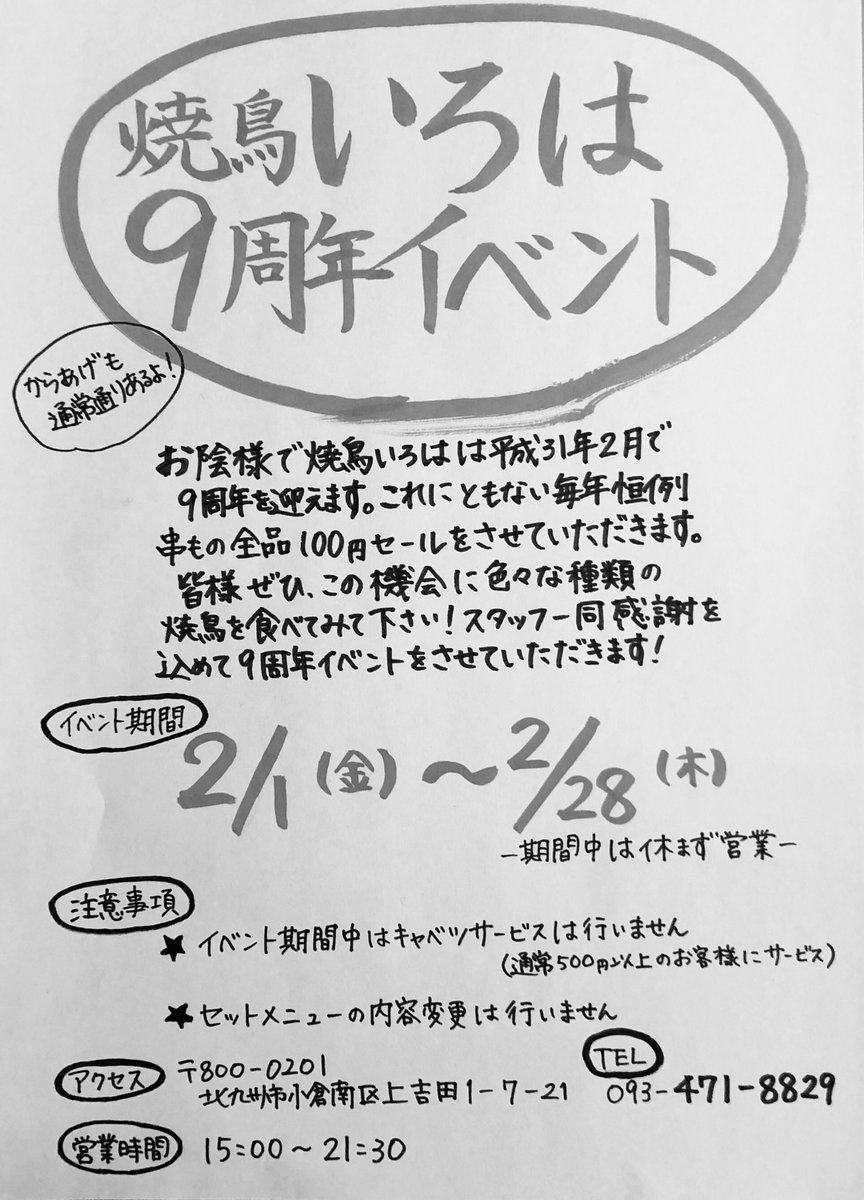 焼鳥いろは
9周年イベント
からあげも
通常通りあるよ！
お陰様で焼鳥いろはは平成31年2月で
9周年を迎えます。これにともない毎年恒例
串もの全品100円セールをさせていただきます。
皆様ぜひ、この機会に色々な種類の
焼鳥を食べてみて下さい！スタッフ一同感謝を
込めて9周年イベントをさせていただきます！
イベント期間
2/1(金)〜2/28(木)
ー期間中は休まず営業ー
注意事項
★ イベント期間中はキャベツサービスは行いません
(通常500円以上のお客様にサービス)
★ セットメニューの内容変更は行いません
アクセス 〒800-0201
北九州市小倉南区上吉田1-7-21
TEL
093-471-8829
営業時間 15:00〜21:30